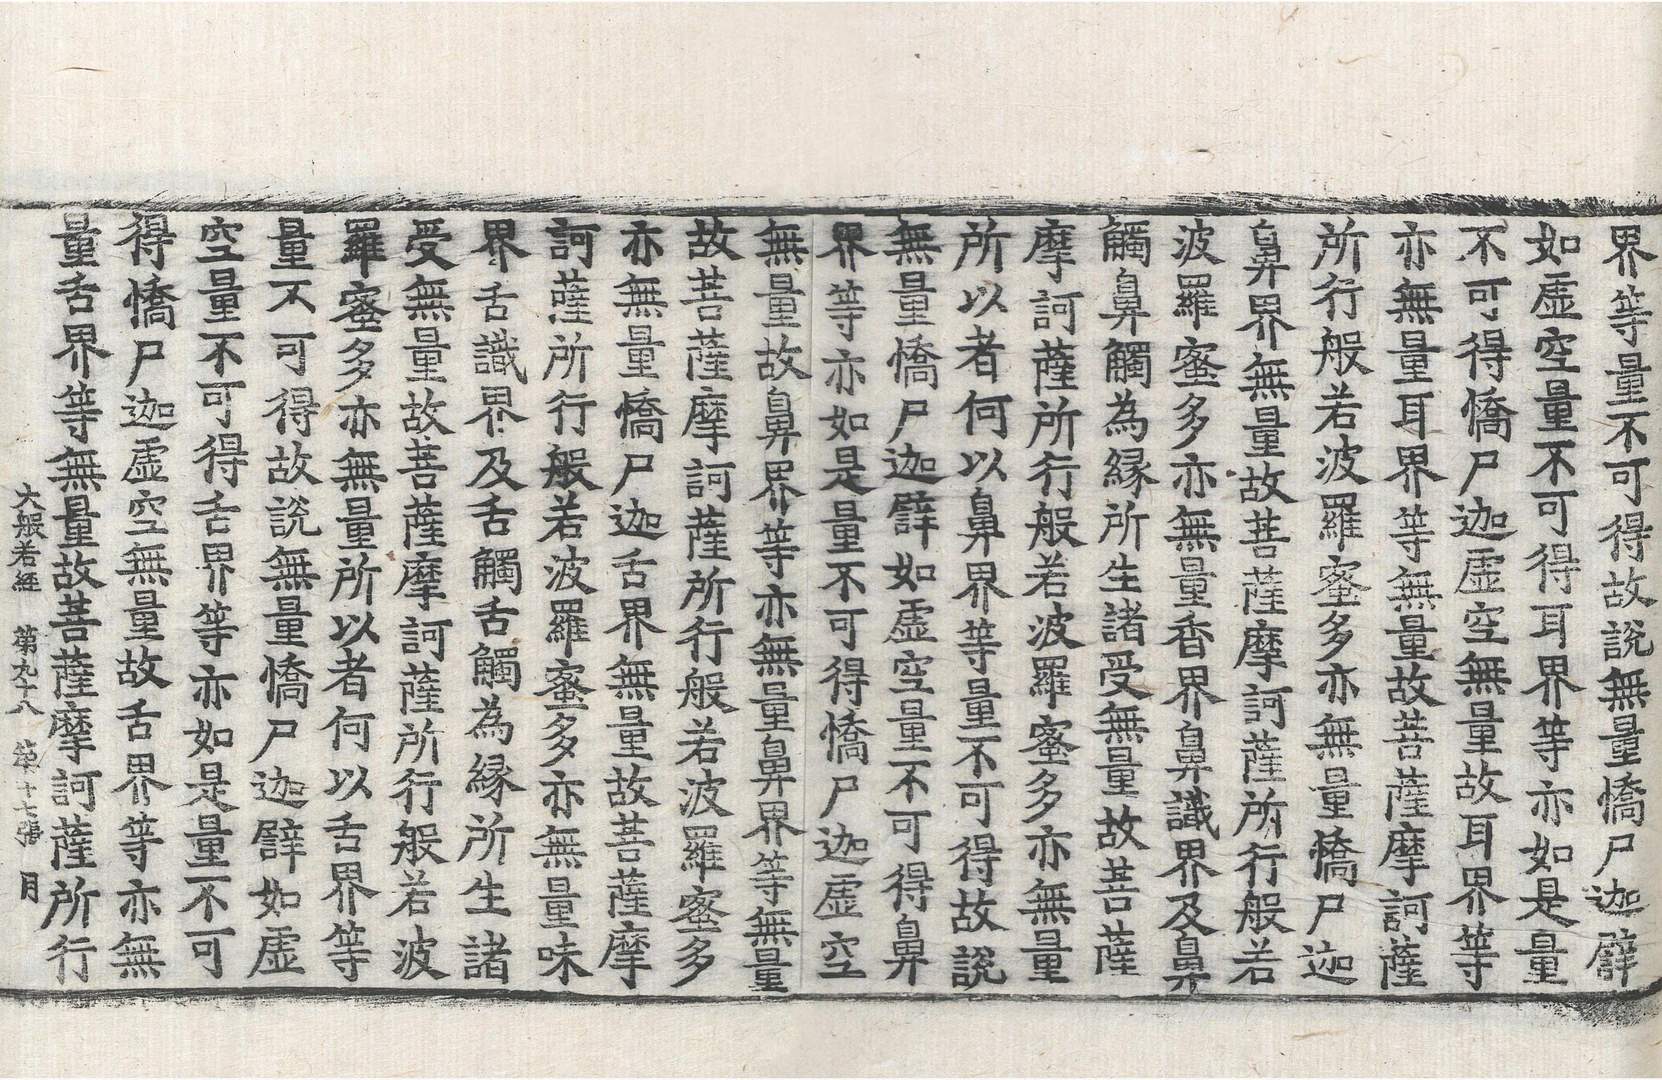 界等量不可得故說無量憍尸迦譬
如虛空量不可得耳界等亦如是量
不可得憍尸迦虛空無量故耳界等
亦無量耳界等無量故菩薩摩訶薩
所行般若波羅蜜多亦無量憍尸迦
鼻界無量故菩薩摩訶薩所行般若
波羅蜜多亦無量香界鼻識界及鼻
觸鼻觸為緣所生諸受無量故菩薩
摩訶薩所行般若波羅蜜多亦無量
所以者何以鼻界等量不可得故說
無量憍尸迦譬如虛空量不可得鼻
界等亦如是量不可得憍尸迦虛空
無量故鼻界等亦無量鼻界等無量
故菩薩摩訶薩所行般若波羅蜜多
亦無量憍尸迦舌界無量故菩薩摩
訶薩所行般若波羅蜜多亦無量味
界舌識界及舌觸舌觸為緣所生諸
受無量故菩薩摩訶薩所行般若波
羅蜜多亦無量所以者何以舌界等
量不可得故說無量憍尸迦譬如虛
空量不可得舌界等亦如是量不可
得憍尸迦虛空無量故舌界等亦無
量舌界等無量故菩薩摩訶薩所行
大般若經 第九十八 第十七張 月